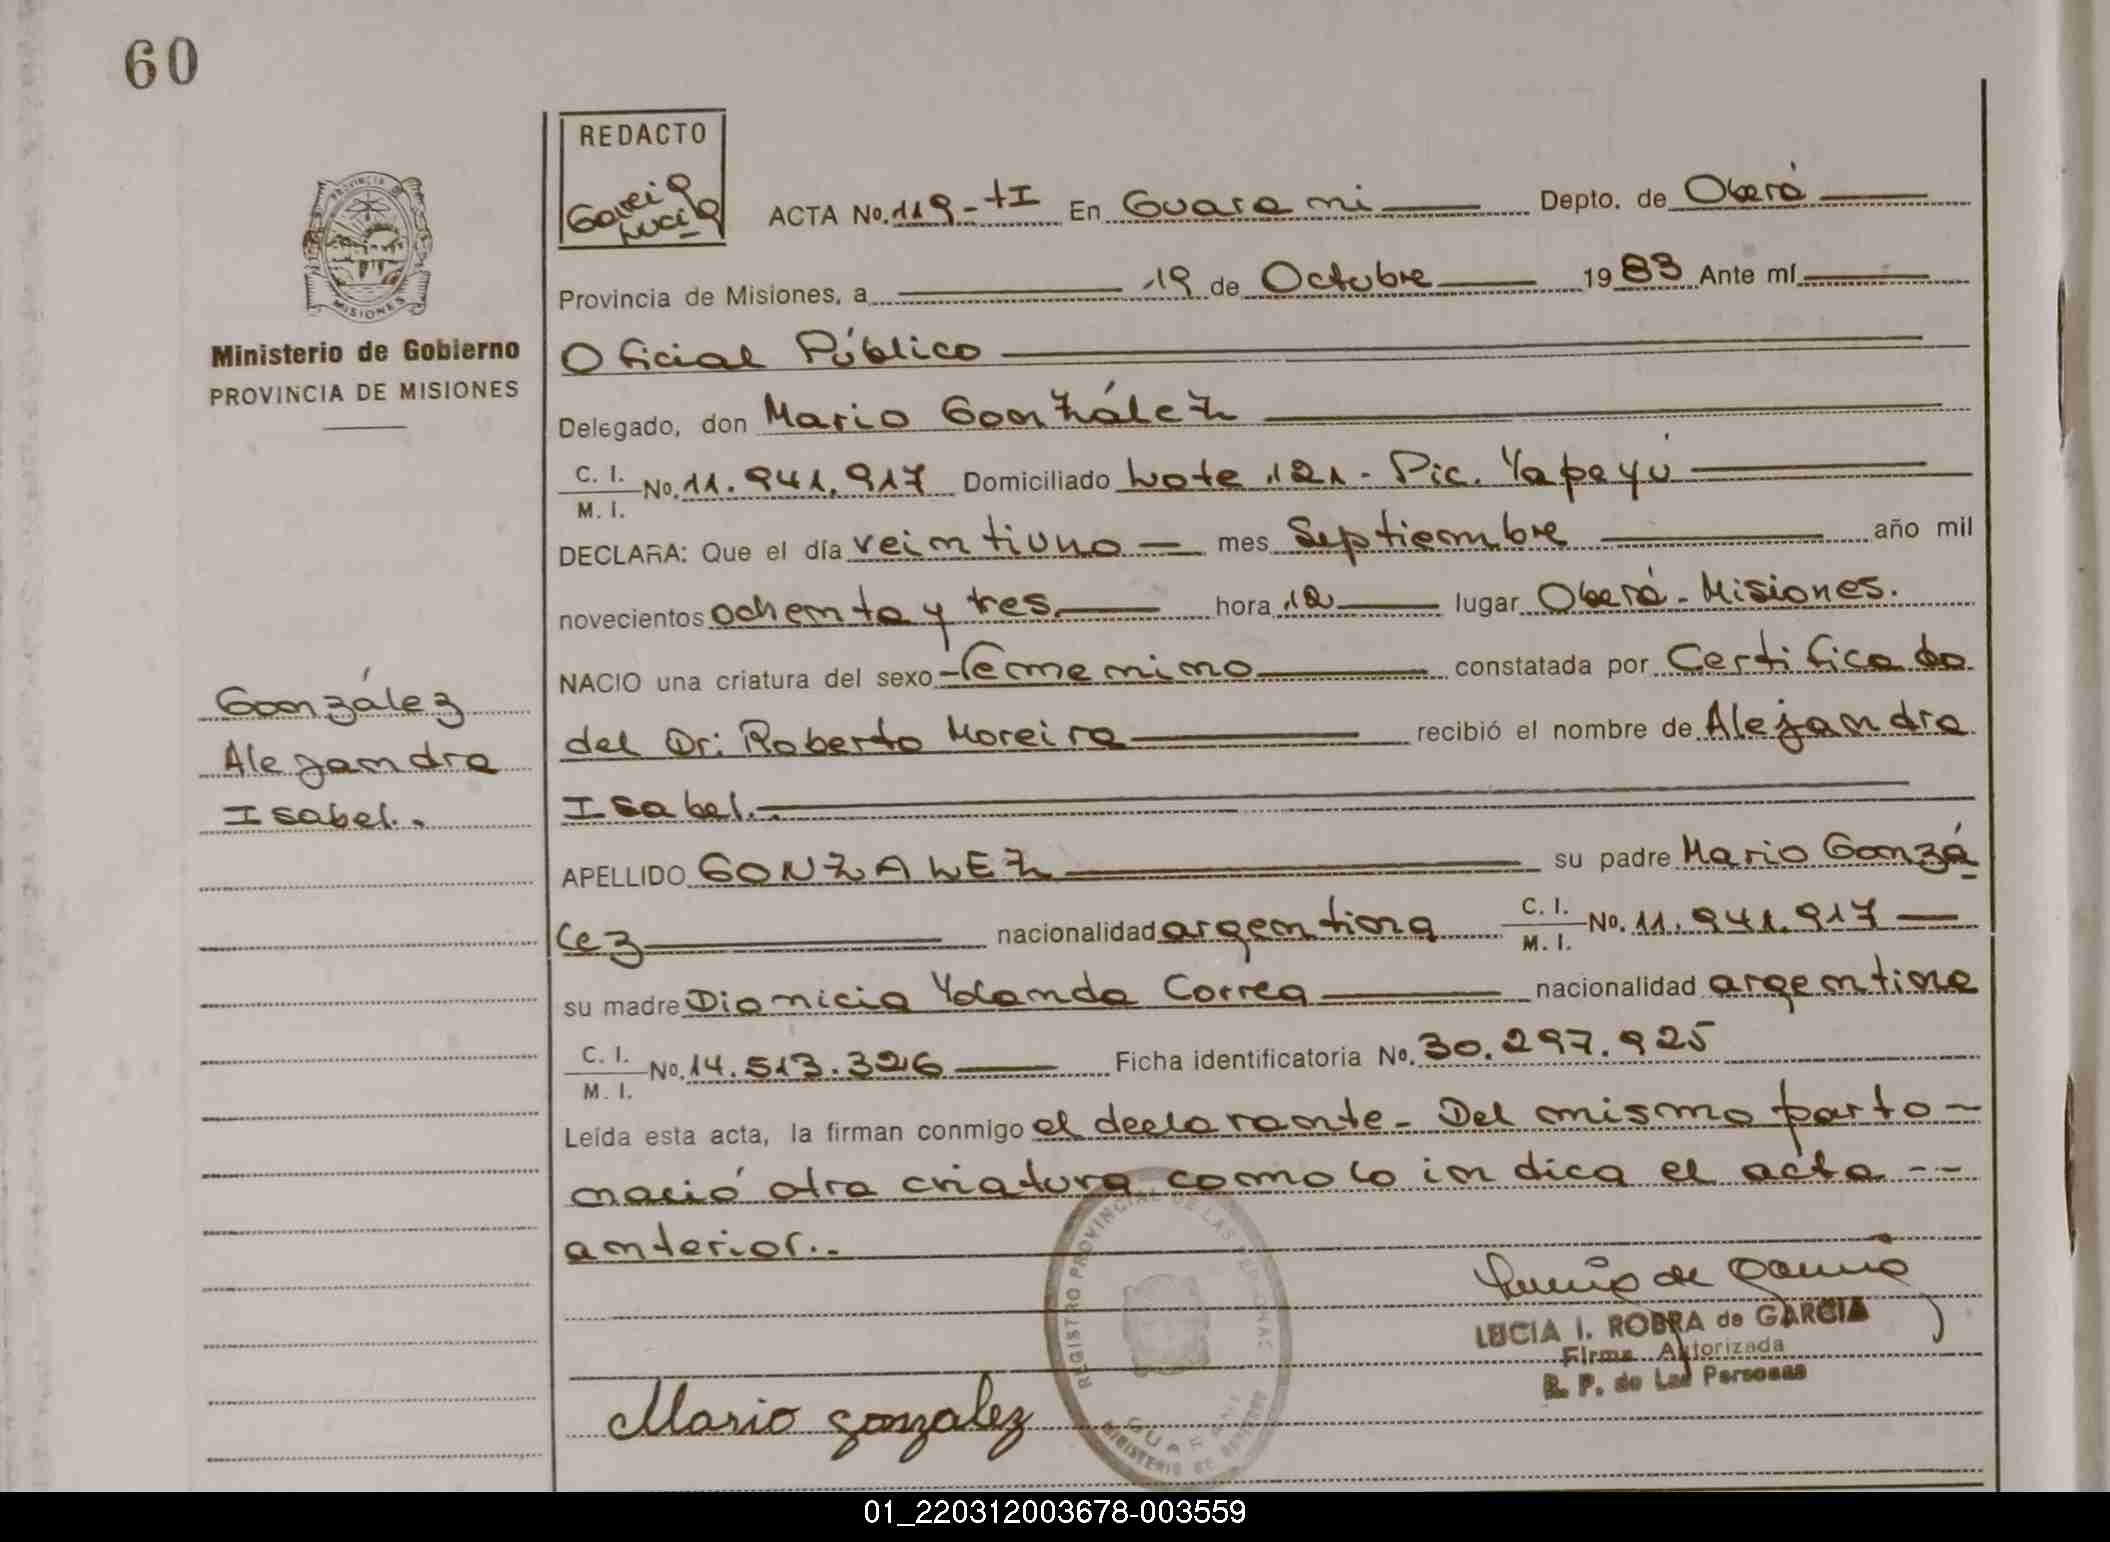 60
REDACTO
Garcia
Lucia
ACTA No. 119-tI En Guarani Depto. de Oberá
Provincia de Misiones, a 19 de Octubre 1983 Ante mí
Oficial Público
Delegado, don Mario González
C. I.
M. I.
No. 11.941.917 Domiciliado Lote 121 - Pic. Yapeyú
DECLARA: Que el día veintiuno mes Septiembre año mil
novecientos ochenta y tres hora 12 lugar Oberá - Misiones.
NACIO una criatura del sexo femenino constatada por Certificado
del Dr: Roberto Moreira recibió el nombre de Alejandra
Isabel.
APELLIDO GONZALEZ su padre Mario Gonzá
lez nacionalidad argentina C. I.
M. I. No. 11.941.917
su madre Dionicia Yolanda Correa nacionalidad argentina
C. I.
M. I.
No. 14.513.326 Ficha identificatoria No. 30.297.925
Leída esta acta, la firman conmigo el declarante - Del mismo parto -
nació otra criatura como lo indica el acta --
anterior..
Ministerio de Gobierno
PROVINCIA DE MISIONES
PROVINCIA DE
MISIONES
González
Alejandra
Isabel..
REGISTRO PROVINCIAL DE LAS PERSONAS
GUARANI
MINISTERIO DE GOBIERNO
Lucia de Garcia
LUCIA I. ROBRA de GARCIA
Firma Autorizada
R. P. de Las Personas
Mario gonzalez
01_220312003678-003559